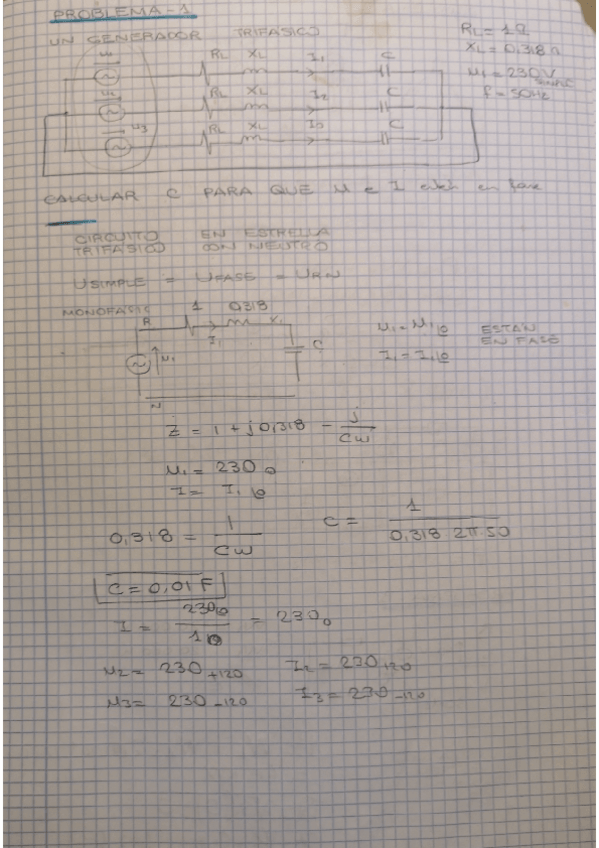 PROBLEMA-1
UN GENERADOR TRIFASICO
RL = 1Ω
XL = 0,318 Ω
U1 = 230V
f = 50Hz
RL XL I1 C
U1
RL XL I2 C
U3 RL XL C
CALCULAR C PARA QUE U e I estén en fase
CIRCUITO EN ESTRELLA
TRIFASICO CON NEUTRO
USIMPLE = UFASE = URN
MONOFASIC
1 0,318
R
I1
U1
C
N
U1 = U1|0 ESTAN
I1 = I1|0 EN FASE
Z = 1 + j0,318 - j/CW
U1 = 230 0
I = I1 |0
0,318 = 1/CW C = 1/0,318 2π.50
C = 0,01 F
I = 230|0/1|0 = 230 0
U2 = 230 +120 I2 = 230 +120
U3 = 230 -120 I3 = 230 -120